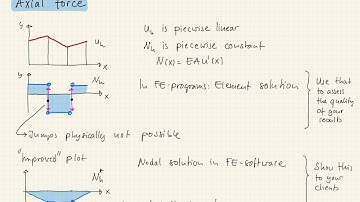 Axial force
y
u_h
x
u_h is piecewise linear
N_h is piecewise constant
N(x) = EAu'(x)
y
N_h
x
In FE-programs: Element solution
Use that
to assess
the quality
of your
results
Jumps physically not possible
"improved" plot
N_h
x
Nodal solution in FE-software
Show this
to your
clients